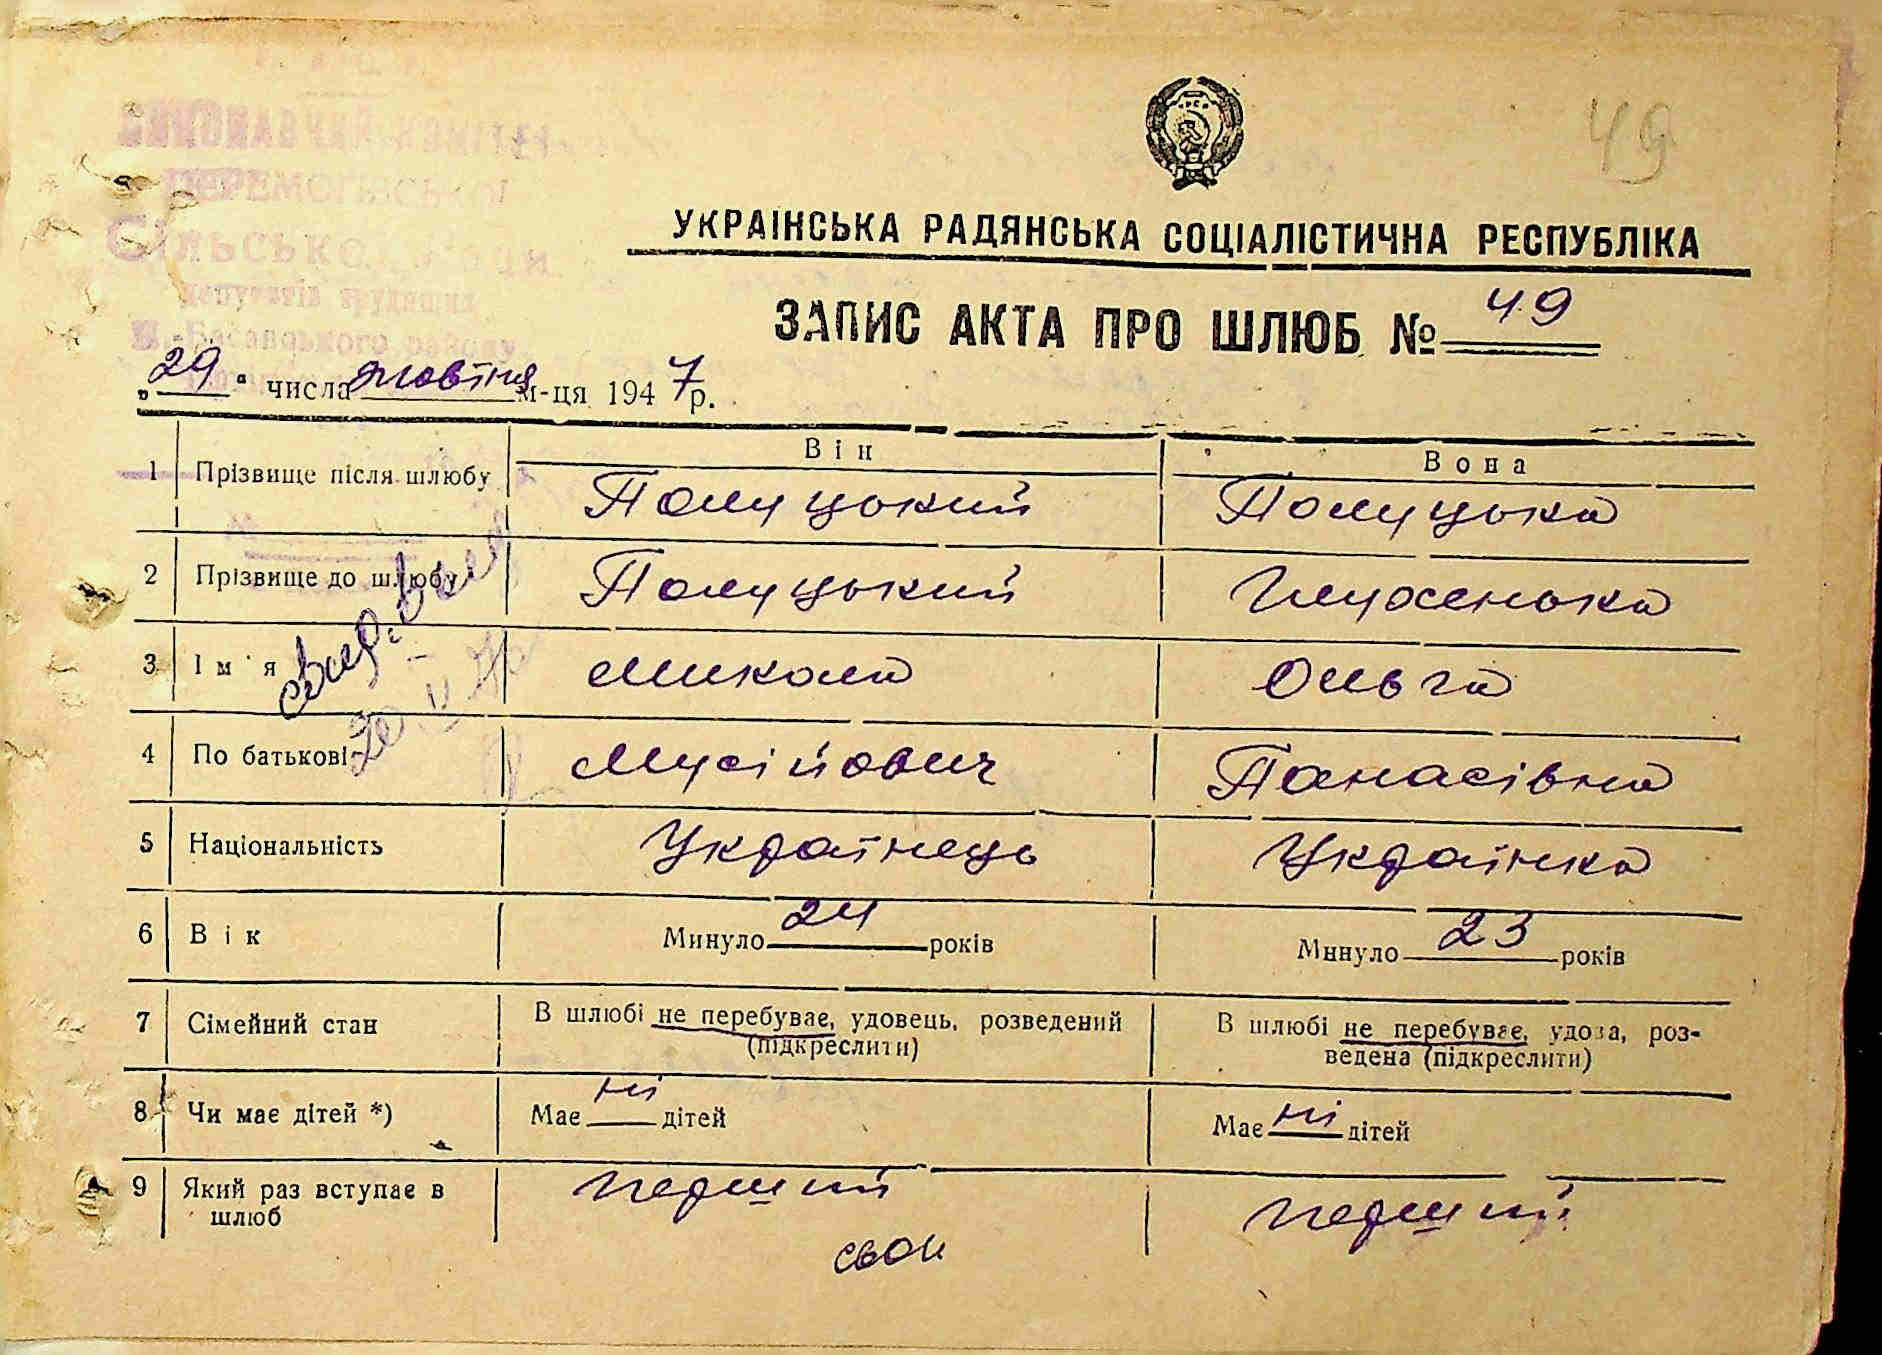 49
ВИКОНАВЧИЙ КОМІТЕТ
ПЕРЕМОГІВСЬКОЇ
СІЛЬСЬКОЇ РАДИ
депутатів трудящих
Н.-Басанського району
УКРАЇНСЬКА РАДЯНСЬКА СОЦІАЛІСТИЧНА РЕСПУБЛІКА
ЗАПИС АКТА ПРО ШЛЮБ № 49
„29“ числа жовтня м-ця 1947 р.
Він Вона
1 Прізвище після шлюбу Полуцький Полуцька
2 Прізвище до шлюбу Полуцький Глухенька
3 Ім'я Микола Ольга
4 По батькові Мусійович Панасівна
5 Національність Українець Українка
6 Вік Минуло 24 років Минуло 23 років
7 Сімейний стан В шлюбі не перебуває, удовець, розведений (підкреслити) В шлюбі не перебуває, удова, роз-
ведена (підкреслити)
8 Чи має дітей *) Має ні дітей Має ні дітей
9 Який раз вступає в шлюб перший перший